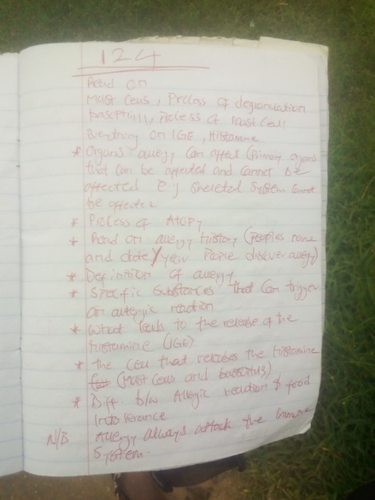 124
Read on
Mast Cells, Process of degranulation
basophil, Process of Mast Cell
Everything on IGE, Histamine
* Organs allergy can affect (Primary organs
that can be affected and cannot be
affected E.g Skeletal System cannot
be affected
* Process of Atopy
* Read on allergy history (Peoples name
and date/year Pirie discover allergy)
* Definition of allergy
* Specific Substances that can trigger
an allergic reaction
* What leads to the release of the
histamine (IGE)
* the Cell that releases the histamine
(Mast Cells and basophils)
* Diff b/w Allergic reaction & food
Intolerance
N/B Allergy always attack the immune
System.